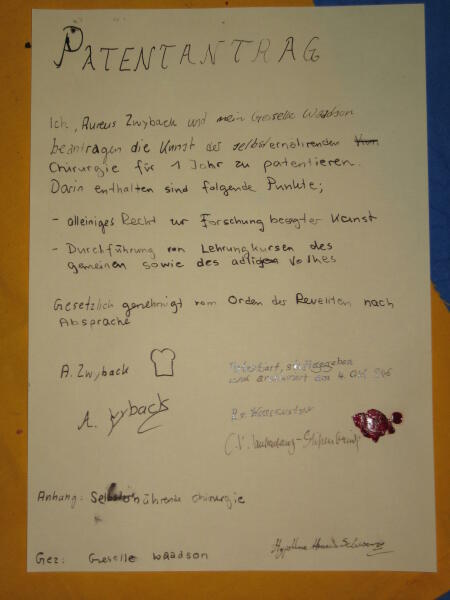 PATENTANTRAG
Ich, Aureus Zwyback und mein Geselle Waadson
beantragen die Kunst der selbsternährenden
Chirurgie für 1 Jahr zu patentieren.
Darin enthalten sind folgende Punkte;
- alleiniges Recht zur Forschung besagter Kunst
- Durchführung von Lehrungkursen des
gemeinen sowie des adligen Volkes
Gesetzlich genehmigt vom Orden des Reveliten nach
Absprache
A. Zwyback
und am 4.
A. Zwyback
Anhang: nährende chirurgie
Gez: Geselle Waadson